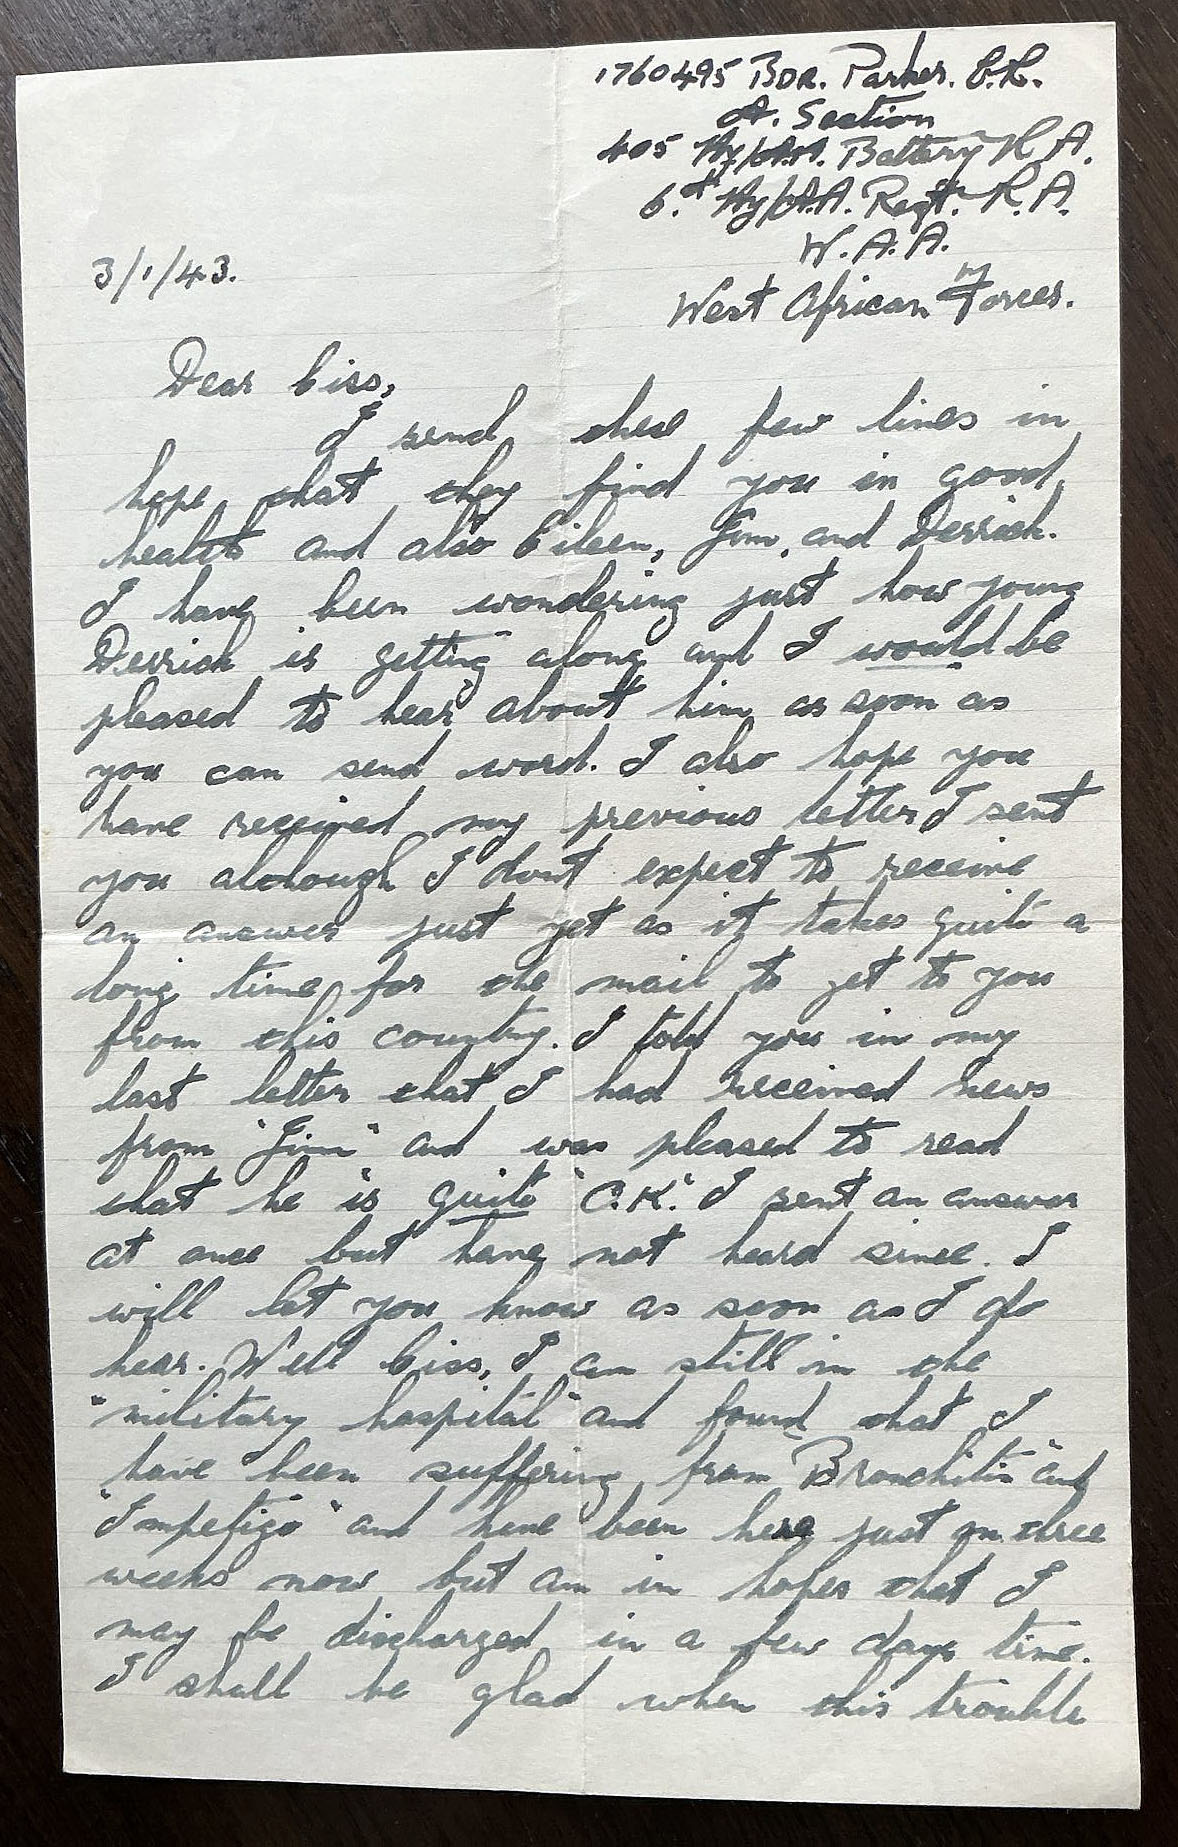 1760495 BDR. Parker. E.R.
A. Section
405 Hy/A.A. Battery R.A.
6.th Hy/A.A. Regt. R.A.
W.A.A.
3/1/43.
West African Forces.
Dear Ciss,
I send these few lines in
hope that they find you in good
health and also Eileen, Jim, and Derrick.
I have been wondering just how young
Derrick is getting along and I would be
pleased to hear about him as soon as
you can send word. I also hope you
have received my previous letter I sent
you although I dont expect to receive
an answer just yet as it takes quite a
long time for the mail to get to you
from this country. I told you in my
last letter that I had received news
from "Jim" and was pleased to read
that he is quite "O.K." I sent an answer
at once but have not heard since. I
will let you know as soon as I do
hear. Well Ciss, I am still in the
"military hospital" and found that I
have been suffering from "Bronchitis" and
"Impetigo" and have been here just on three
weeks now but am in hopes that I
may be discharged in a few days time.
I shall be glad when this trouble